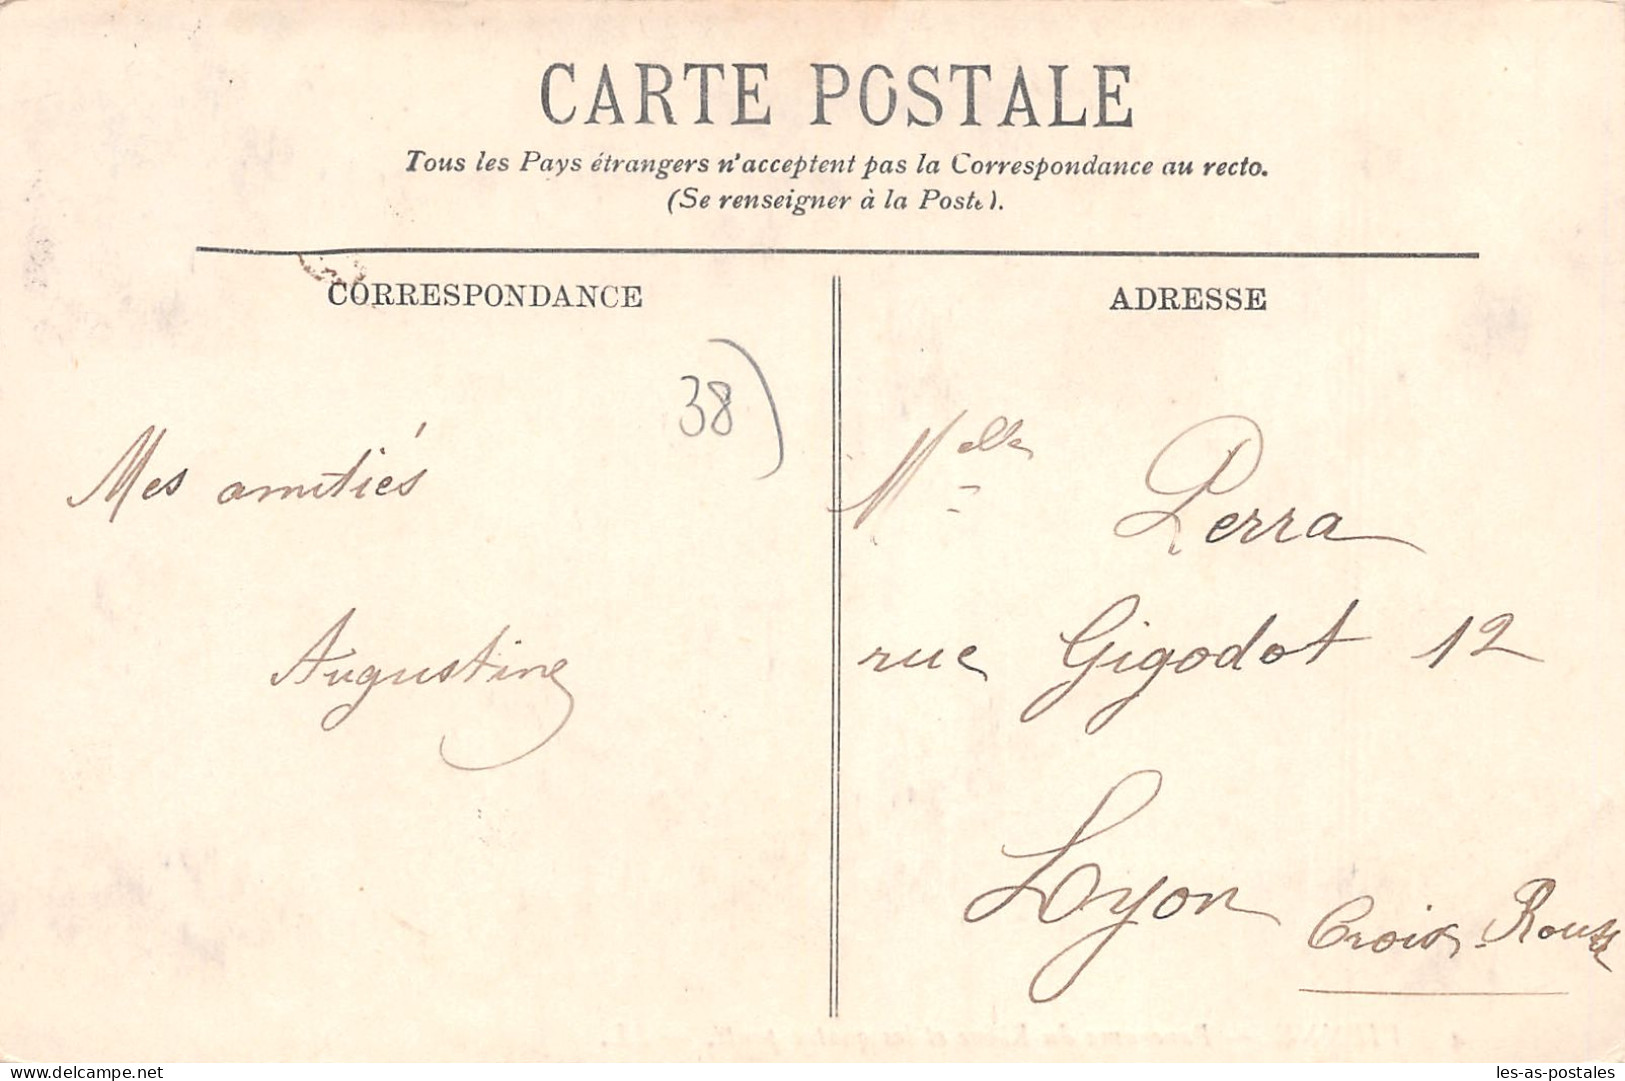 CARTE POSTALE
Tous les Pays étrangers n'acceptent pas la Correspondance au recto.
(Se renseigner à la Poste).
CORRESPONDANCE
38)
Mes amitiés
Augustine
ADRESSE
Melle Perra
rue Gigodot 12
Lyon Croix-Rousse
delcampe.net
les-as-postales